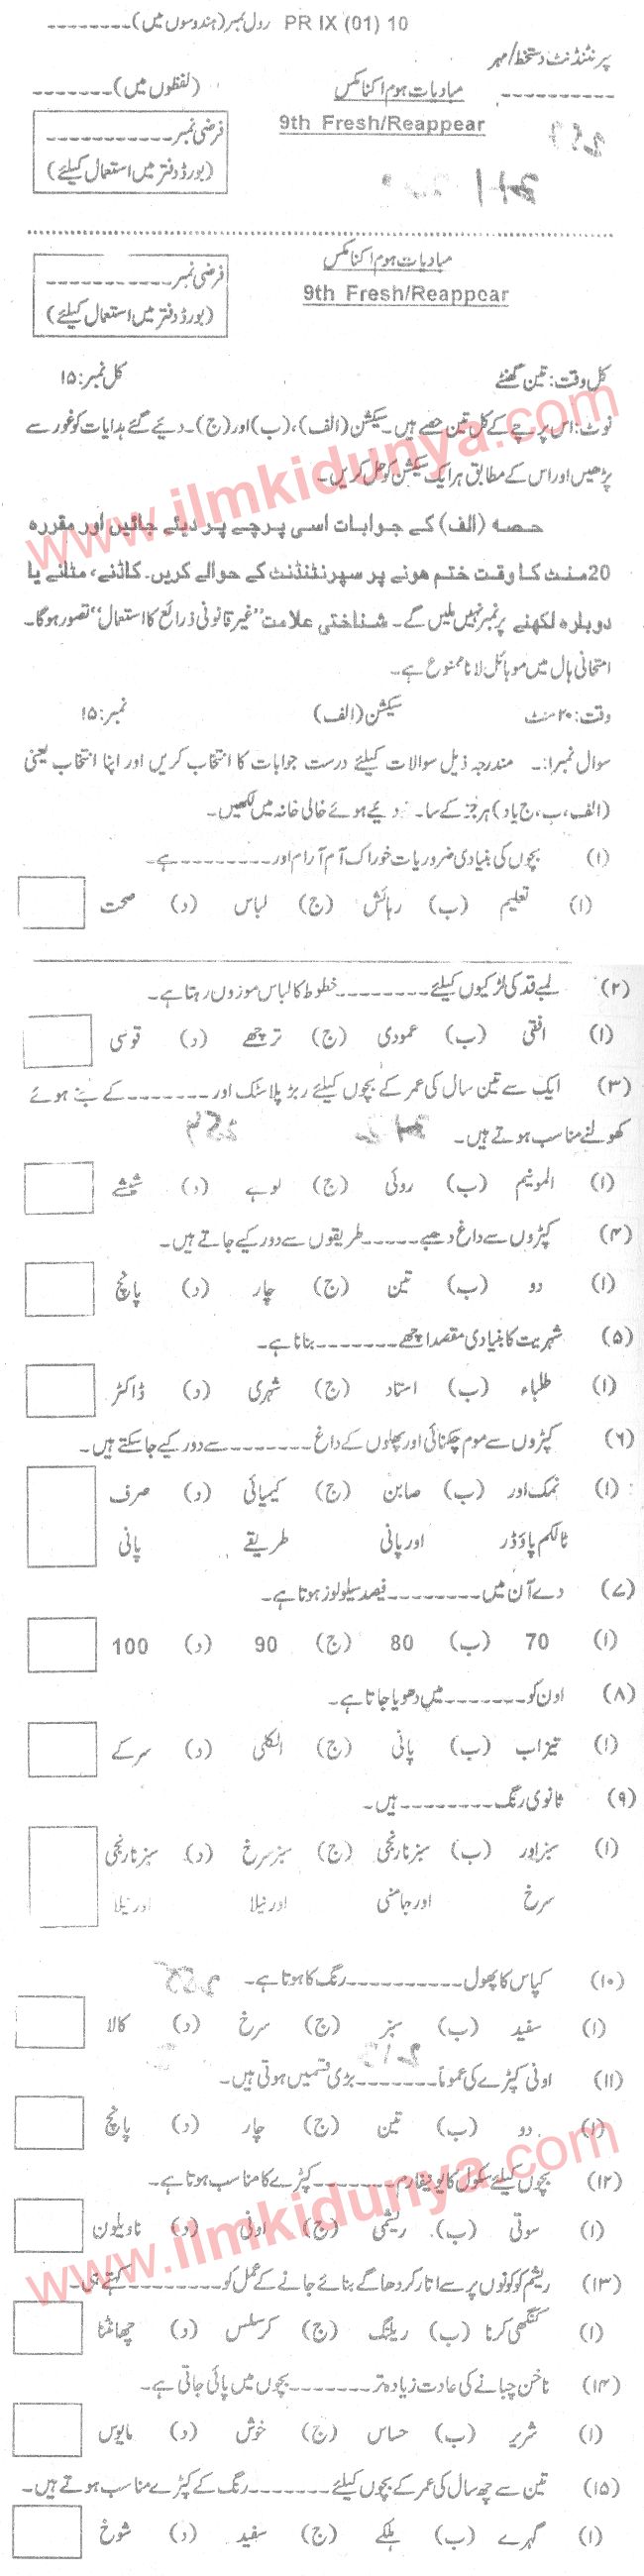 PR IX (01) 10 رول نمبر (ہندسوں میں)
پرنٹنڈنٹ دستخط/مہر
مبادیات ہوم اکنامکس
(لفظوں میں)
9th Fresh/Reappear
فرضی نمبر
(بورڈ دفتر میں استعمال کیلئے)
مبادیات ہوم اکنامکس
9th Fresh/Reappear
فرضی نمبر
(بورڈ دفتر میں استعمال کیلئے)
کل وقت: تین گھنٹے کل نمبر: ۱۵
نوٹ: اس پرچے کے کل تین حصے ہیں۔ سیکشن (الف)، (ب) اور (ج)۔ دیئے گئے ہدایات کو غور سے
پڑھیں اور اس کے مطابق ہر ایک سیکشن کو حل کریں۔
حصہ (الف) کے جوابات اسی پرچے پر دیئے جائیں اور مقررہ
20 منٹ کا وقت ختم ہونے پر سپرنٹنڈنٹ کے حوالے کریں۔ کاٹنے، مٹانے یا
دوبارہ لکھنے پر نمبر نہیں ملیں گے۔ شناختی علامت "غیر قانونی ذرائع کا استعمال" تصور ہوگا۔
امتحانی ہال میں موبائل لانا ممنوع ہے۔
وقت: ۲۰ منٹ سیکشن (الف) نمبر: ۱۵
سوال نمبر۱:۔ مندرجہ ذیل سوالات کیلئے درست جوابات کا انتخاب کریں اور اپنا انتخاب یعنی
(الف، ب، ج یا د) ہر جز کے سا۔ دیئے ہوئے خالی خانہ میں لکھیں۔
(۱) بچوں کی بنیادی ضروریات خوراک آم آرام اور ـــــــــ ہے۔
(ا) تعلیم (ب) رہائش (ج) لباس (د) صحت
(۲) لمبے قد کی لڑکیوں کیلئے ـــــــــ خطوط کا لباس موزوں رہتا ہے۔
(ا) افقی (ب) عمودی (ج) ترچھے (د) قوسی
(۳) ایک سے تین سال کی عمر کے بچوں کیلئے ربڑ پلاسٹک اور ـــــــــ کے بنے ہوئے
کھولنے مناسب ہوتے ہیں۔
(ا) المونیم (ب) روئی (ج) لوہے (د) شیشے
(۴) کپڑوں سے داغ دھبے ـــــــــ طریقوں سے دور کیے جاتے ہیں۔
(ا) دو (ب) تین (ج) چار (د) پانچ
(۵) شہریت کا بنیادی مقصد اچھے ـــــــــ بنانا ہے۔
(ا) طلباء (ب) استاد (ج) شہری (د) ڈاکٹر
(۶) کپڑوں سے موم چکنائی اور پھلوں کے داغ ـــــــــ سے دور کیے جاسکتے ہیں۔
(ا) نمک اور (ب) صابن (ج) کیمیائی (د) صرف
ٹالکم پاؤڈر اور پانی طریقے پانی
(۷) دے آن میں ـــــــــ فیصد سیلولوز ہوتا ہے۔
(ا) 70 (ب) 80 (ج) 90 (د) 100
(۸) اون کو ـــــــــ میں دھویا جاتا ہے۔
(ا) تیزاب (ب) پانی (ج) الکلی (د) سرکے
(۹) ثانوی رنگ ـــــــــ ہیں۔
(ا) سبز اور (ب) سبز نارنجی (ج) سبز سرخ (د) سبز نارنجی
سرخ اور جامنی اور نیلا اور نیلا
(۱۰) کپاس کا پھول ـــــــــ رنگ کا ہوتا ہے۔
(ا) سفید (ب) سبز (ج) سرخ (د) کالا
(۱۱) اونی کپڑے کی عموماً ـــــــــ بڑی قسمیں ہوتی ہیں۔
(ا) دو (ب) تین (ج) چار (د) پانچ
(۱۲) بچوں کیلئے سکول کا یونیفارم ـــــــــ کپڑے کا مناسب ہوتا ہے۔
(ا) سوتی (ب) ریشمی (ج) اونی (د) ناویلون
(۱۳) ریشم کو کونوں پر سے اتار کر دھاگے بنائے جانے کے عمل کو ـــــــــ کہتے ہی۔
(ا) کنگھی کرنا (ب) ریلنگ (ج) کرسلس (د) چھانٹنا
(۱۴) ناخن چبانے کی عادت زیادہ تر ـــــــــ بچوں میں پائی جاتی ہے۔
(ا) شریر (ب) حساس (ج) خوش (د) مایوس
(۱۵) تین سے چھ سال کی عمر کے بچوں کیلئے ـــــــــ رنگ کے کپڑے مناسب ہوتے ہیں۔
(ا) گہرے (ب) ہلکے (ج) سفید (د) شوخ
www.ilmkidunya.com
www.ilmkidunya.com